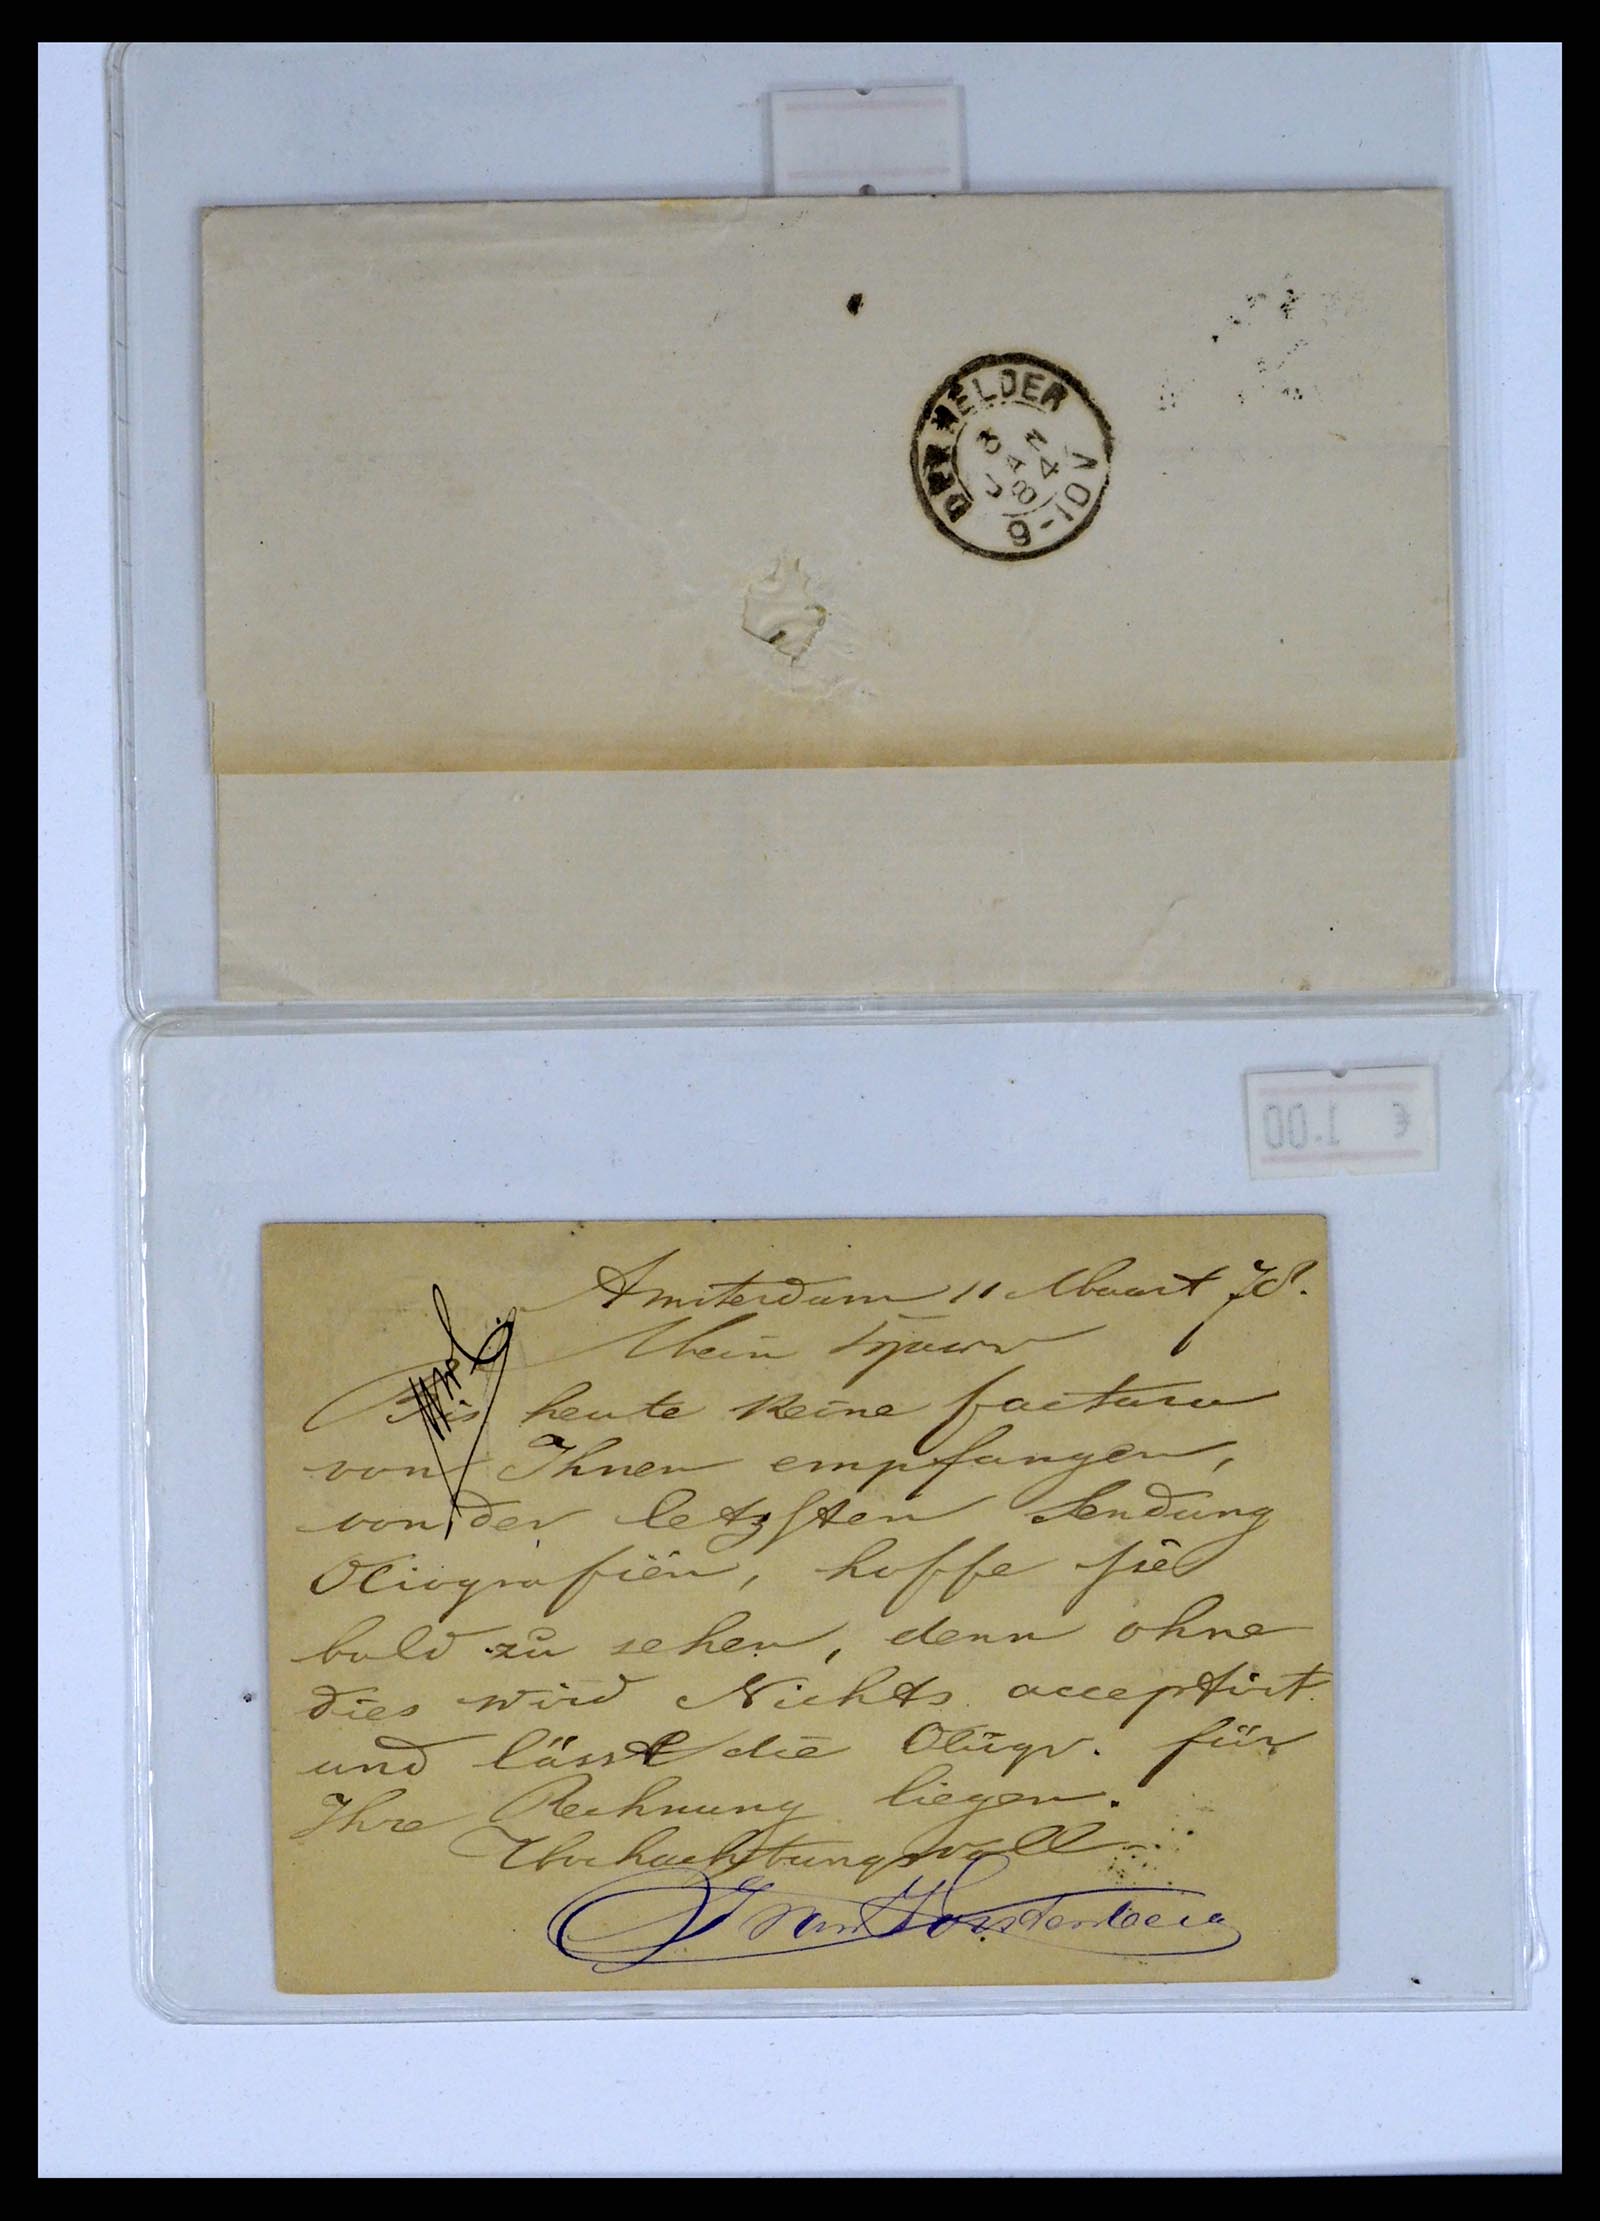 DEN HELDER
8 JAN 84
9-10 V
€ 1.00
Amsterdam 11 Maart 78.
Mein
Bis heute keine factura
von Ihnen empfangen,
von der letzsten Sendung
Oliografiën, hoffe sie
bald zu sehen, denn ohne
dies wird Nichts acceptirt
und lässt die für
Ihre Rechnung liegen.
Hochachtungsvoll